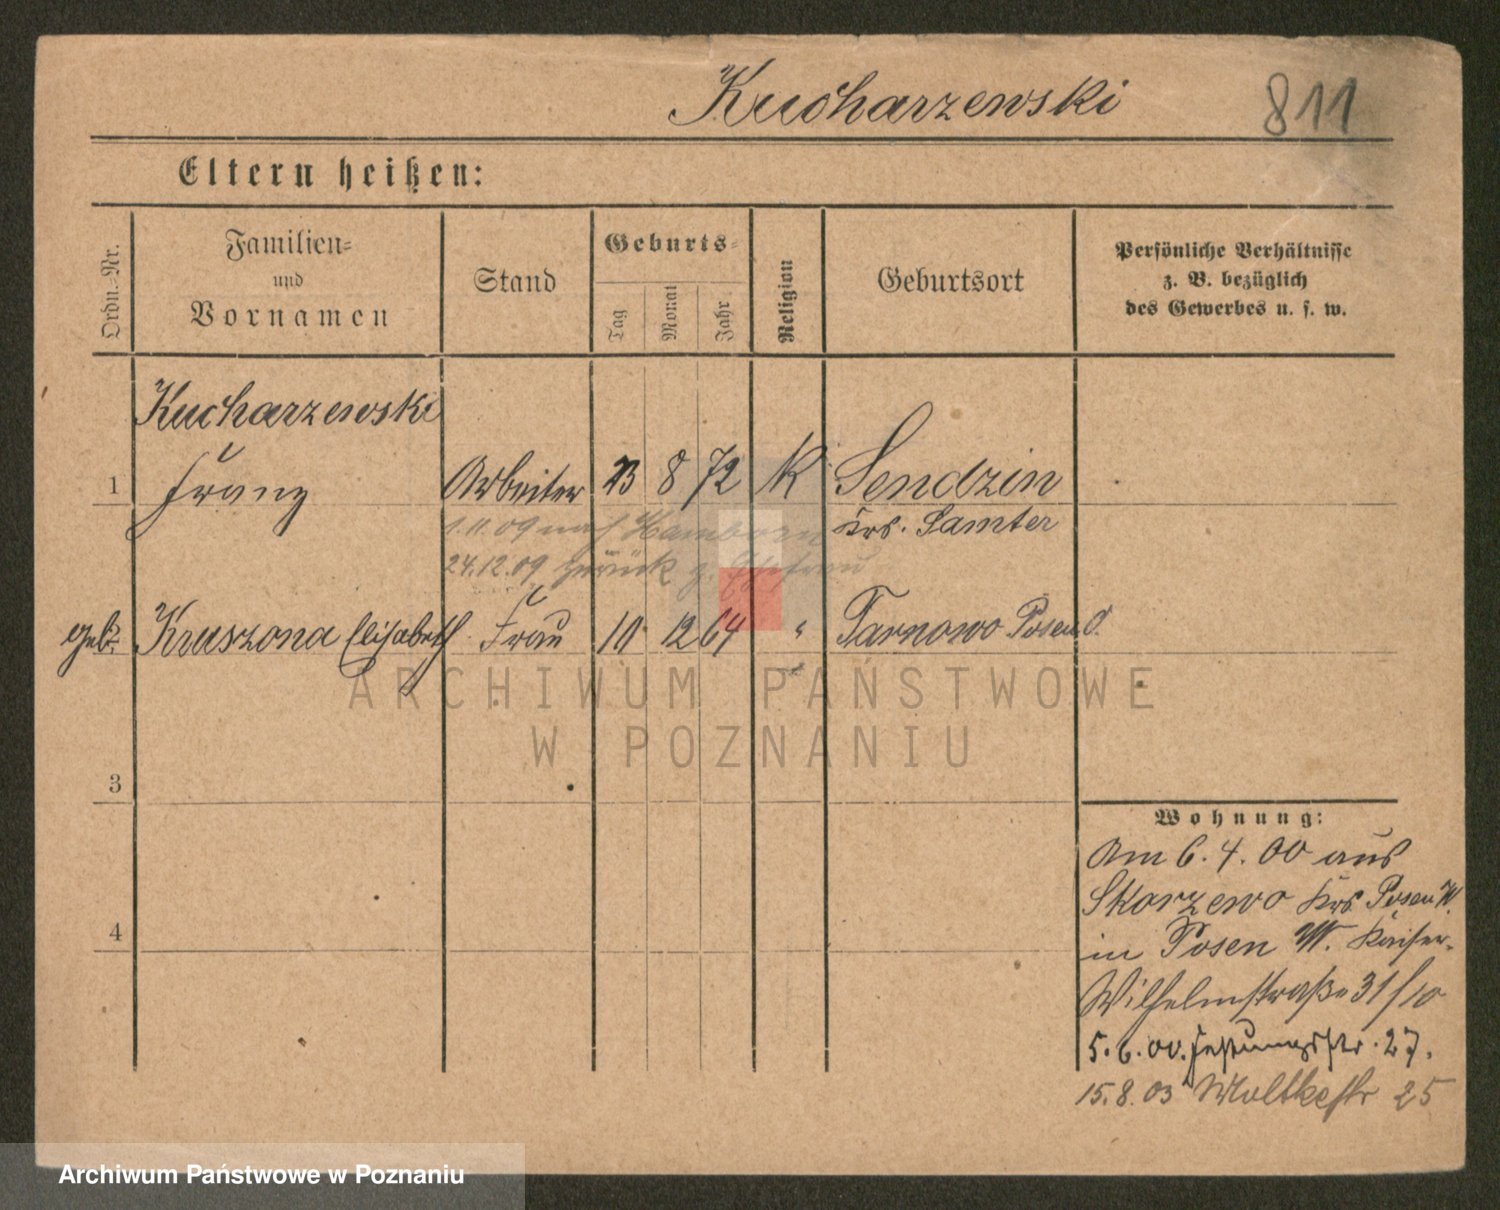 Kucharzewski 811
Eltern heißen:
Ordn.-Nr.
Familien-
und
Vornamen
Stand
Geburts-
Tag
Monat
Jahr
Religion
Geburtsort
Persönliche Verhältnisse
z. B. bezüglich
des Gewerbes u. s. w.
Kucharzewski
1 Franz Arbeiter 23 8 72 K Sendzin
1.11.09 nach Hamborn Krs. Samter
24.12.09 zurück z. Ehefrau
geb. Kruszona Elisabeth Frau 10 12 64 " Tarnowo Posen O.
ARCHIWUM PAŃSTWOWE
W POZNANIU
3
4
Wohnung:
Am 6.4.00 aus
Skorzewo Krs Posen W.
in Posen W. Kaiser-
Wilhelmstraße 31/10
5.6.00. Festungsstr. 27.
15.8.03 Moltkestr 25
Archiwum Państwowe w Poznaniu